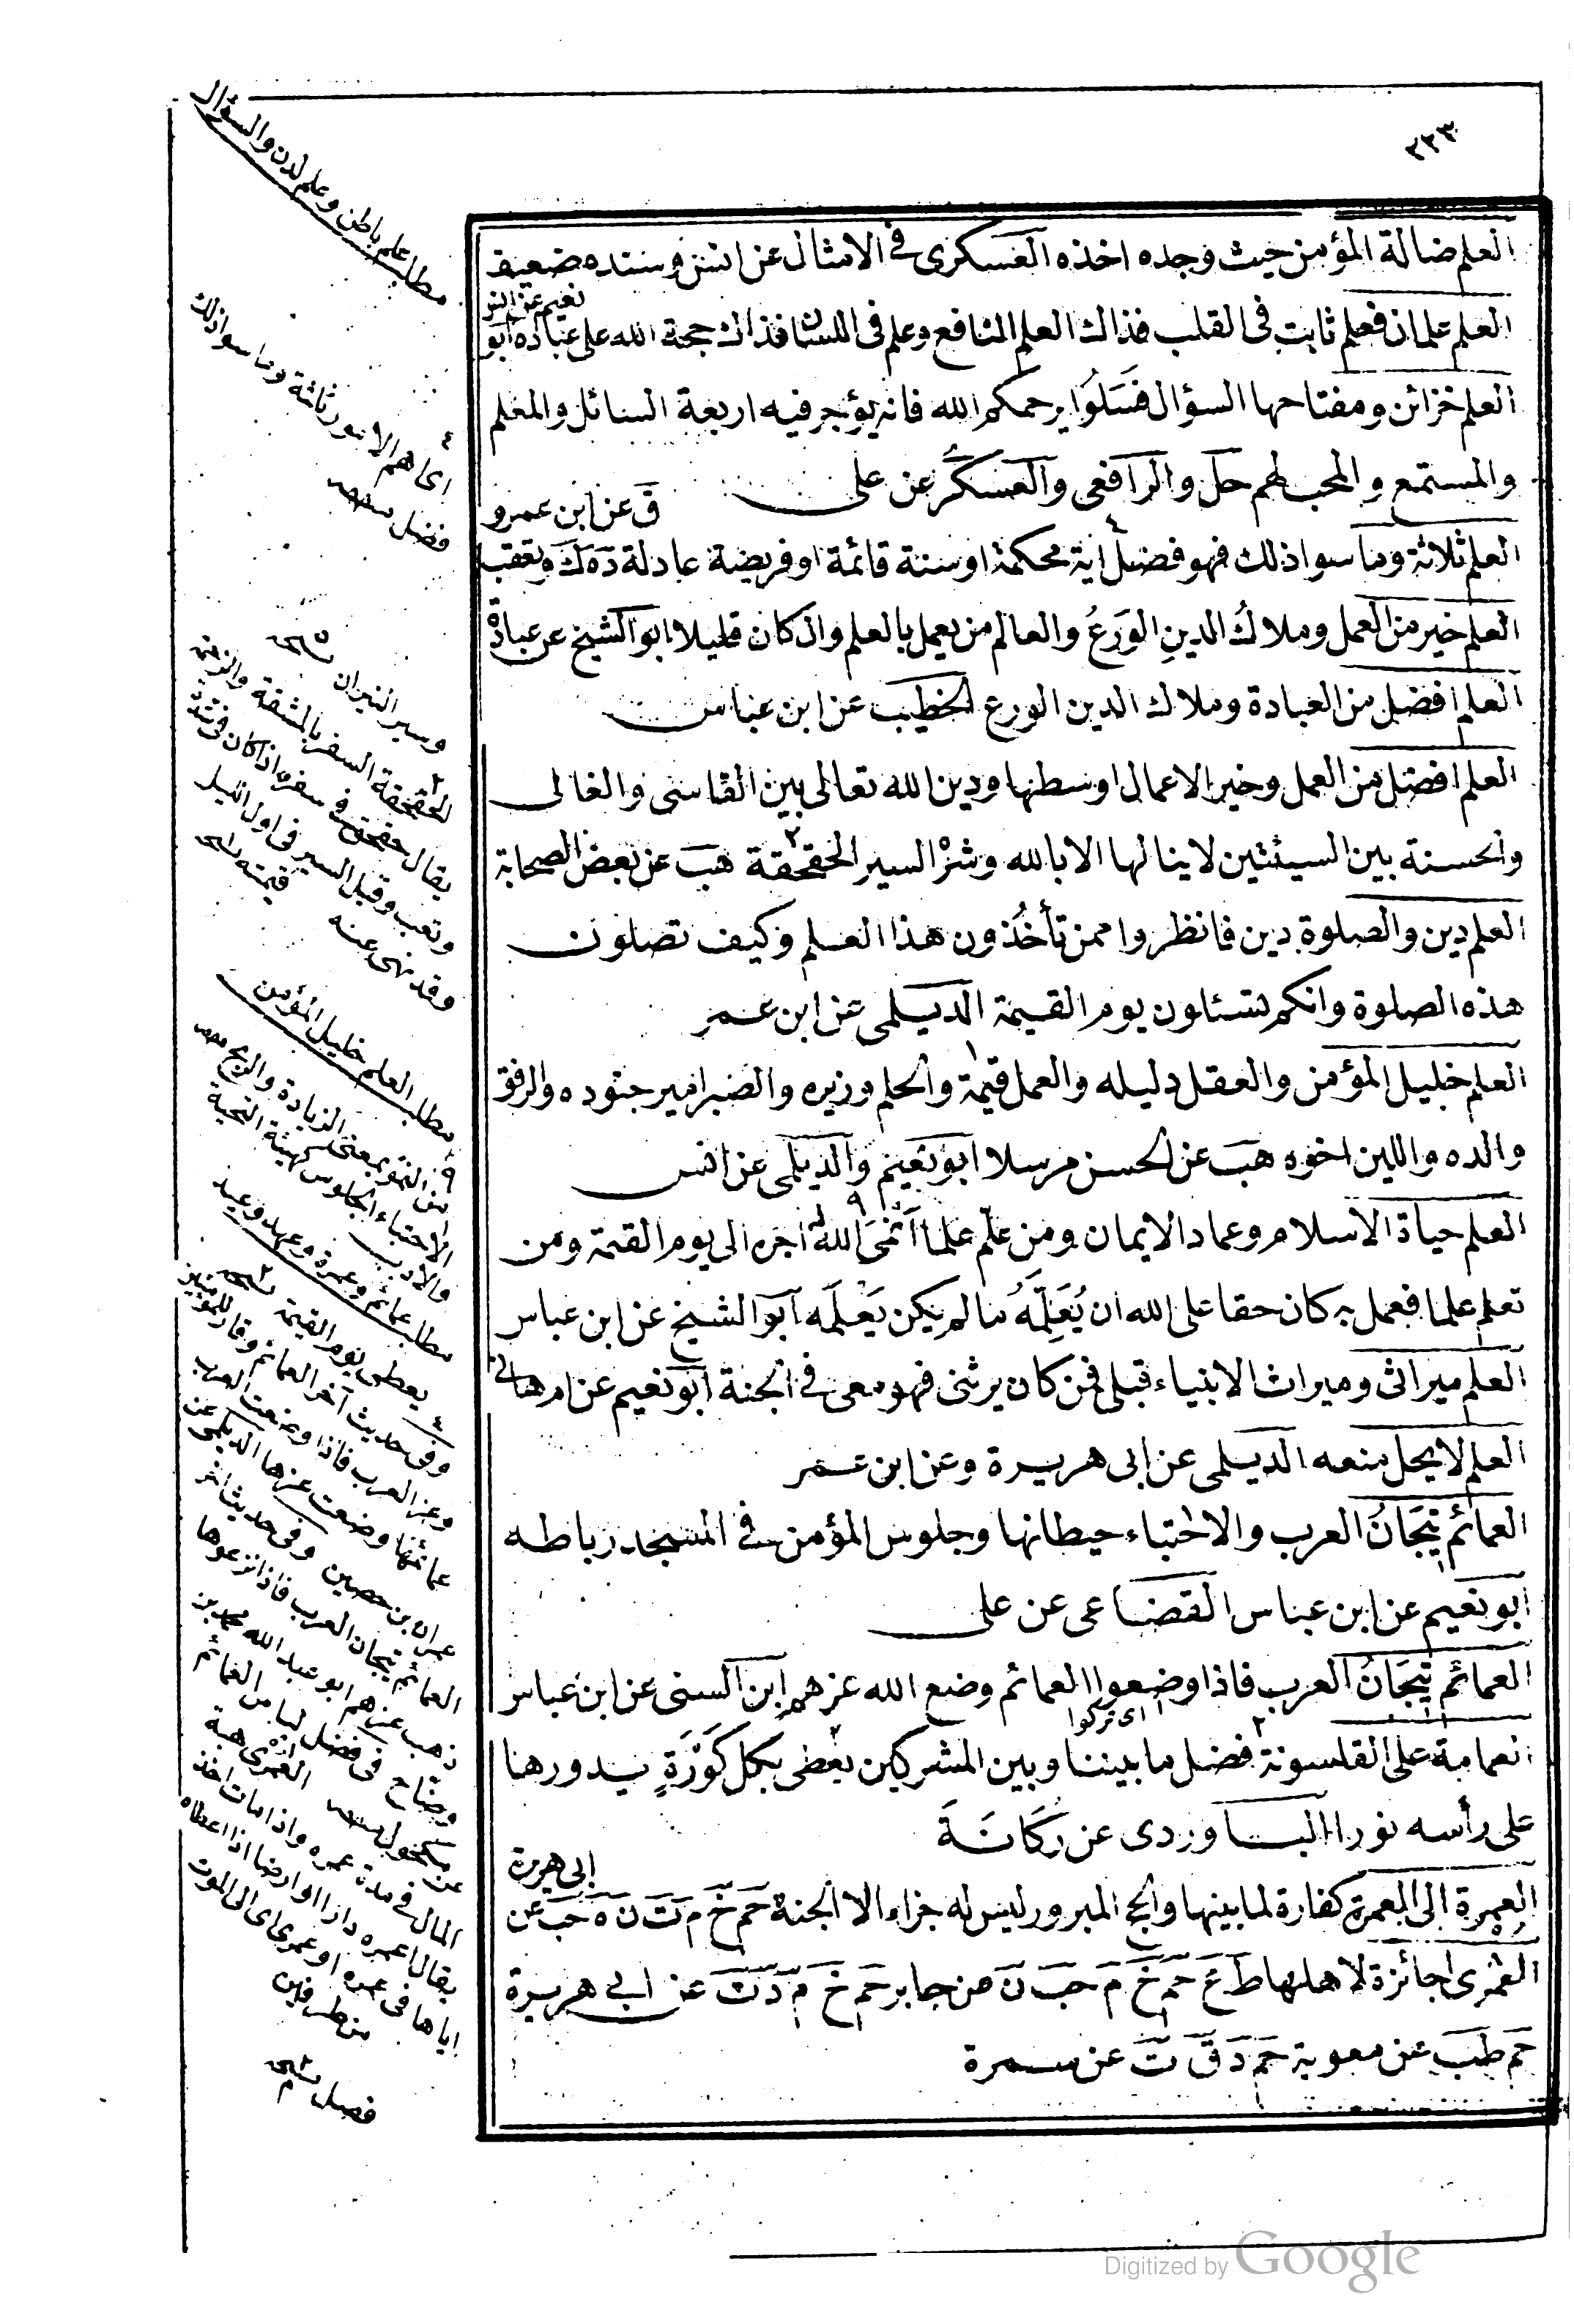 ٢٢٣
العلم ضالة المؤمن حيث وجده اخذه العسكرى فى الامثال عن انس وسنده ضعيف
العلم علمان فعلم ثابت فى القلب فذاك العلم النافع وعلم فى اللسان فذاك حجة الله على عباده ابو
نعيم عن انس
العلم خزائن ومفتاحها السؤال فَسَلُوا يرحمكم الله فانه يؤجر فيه اربعة السائل والمعلم
والمستمع والمحب لهم حل والرافعى والعسكرى عن على
العلم ثلاثة وما سوا ذلك فهو فضل اية محكمة او سنة قائمة او فريضة عادلة د ه ك وتعقب
ق عن ابن عمرو
العلم خير من العمل وملاك الدين الورع والعالم من يعمل بالعلم وان كان قليلا ابو الشيخ عن عبادة
العلم افضل من العبادة وملاك الدين الورع الخطيب عن ابن عباس
العلم افضل من العمل وخير الاعمال اوسطها ودين الله تعالى بين القاسى والغالى
والحسنة بين السيئتين لا ينالها الا بالله وشر السير الحقحقة هب عن بعض الصحابة
العلم دين والصلوة دين فانظروا ممن تأخذون هذا العلم وكيف تصلون
هذه الصلوة وانكم تسئلون يوم القيمة الديلمى عن ابن عمر
العلم خليل المؤمن والعقل دليله والعمل قيمة والحلم وزيره والصبر امير جنوده والرفق
والده واللين اخوه هب عن الحسن مرسلا ابو نعيم والديلمى عن انس
العلم حياة الاسلام وعماد الايمان ومن علّم علما اَنْمَى الله له اجره الى يوم القيمة ومن
تعلم علما فعمل به كان حقا على الله ان يُعَلِّمَهُ ما لم يكن يَعْلَمه ابو الشيخ عن ابن عباس
العلم ميراثى وميراث الانبياء قبلى فمن كان يرثنى فهو معى فى الجنة ابو نعيم عن ام هانى
العلم لا يحل منعه الديلمى عن ابى هريرة وعن ابن عمر
العمائم تِيجَانُ العرب والاحتباء حيطانها وجلوس المؤمن فى المسجد رباطه
ابو نعيم عن ابن عباس القضاعى عن على
العمائم تِيجَانُ العرب فاذا وضعوا العمائم وضع الله عزهم ابن السنى عن ابن عباس
اى تركوا
العمامة على القلنسوة فضل ما بيننا وبين المشركين يعطى بكل كَوْرَةٍ يدورها
على رأسه نورا الباوردى عن رُكَانَةَ
العمرة الى العمرة كفارة لما بينهما والحج المبرور ليس له جزاء الا الجنة حم خ م ت ن ه حب عن
ابى هريرة
العُمْرَى جائزة لاهلها ط ع حم خ م حب ن عن جابر حم خ م د ن عن ابى هريرة
حم طب عن معوية حم د ق ت عن سمرة
مطلب علم باطن وعلم لدن والسؤال
اى اهم الامور ثلثة وما سوا ذلك
فضل
وسير النيران
الحقحقة السفر بالمشقة
يقال حقحق فى سفره اذا كان فى شدة
وتعب وقيل السير فى اول الليل
وقد نهى عنه
قيمته
مطلب العلم خليل المؤمن
من النمو بمعنى الزيادة والربح
الاحتباء الجلوس كهيئة التحية
والادب
مطلب عمائم وعمرة وعهد وعيد
يعطى يوم القيمة
وفى حديث آخر العمائم وقار للمؤمنين
وعز العرب فاذا وضعت العرب
عمائمها وضعت عزها الديلمى عن
عمران بن حصين وفى حديث آخر
العمائم تيجان العرب فاذا نزعوها
ذهب عزهم ابو عبد الله محمد بن
وضاح فى فضل لباس العمائم
عن مكحول
العمرى هبة
المال فى مدة عمره واذا مات اخذ
يقال اعمره دارا او ارضا اذا اعطاه
اياها فى عمره او عمرى اى الى الموت
من طرفين
فصل
Digitized by Google